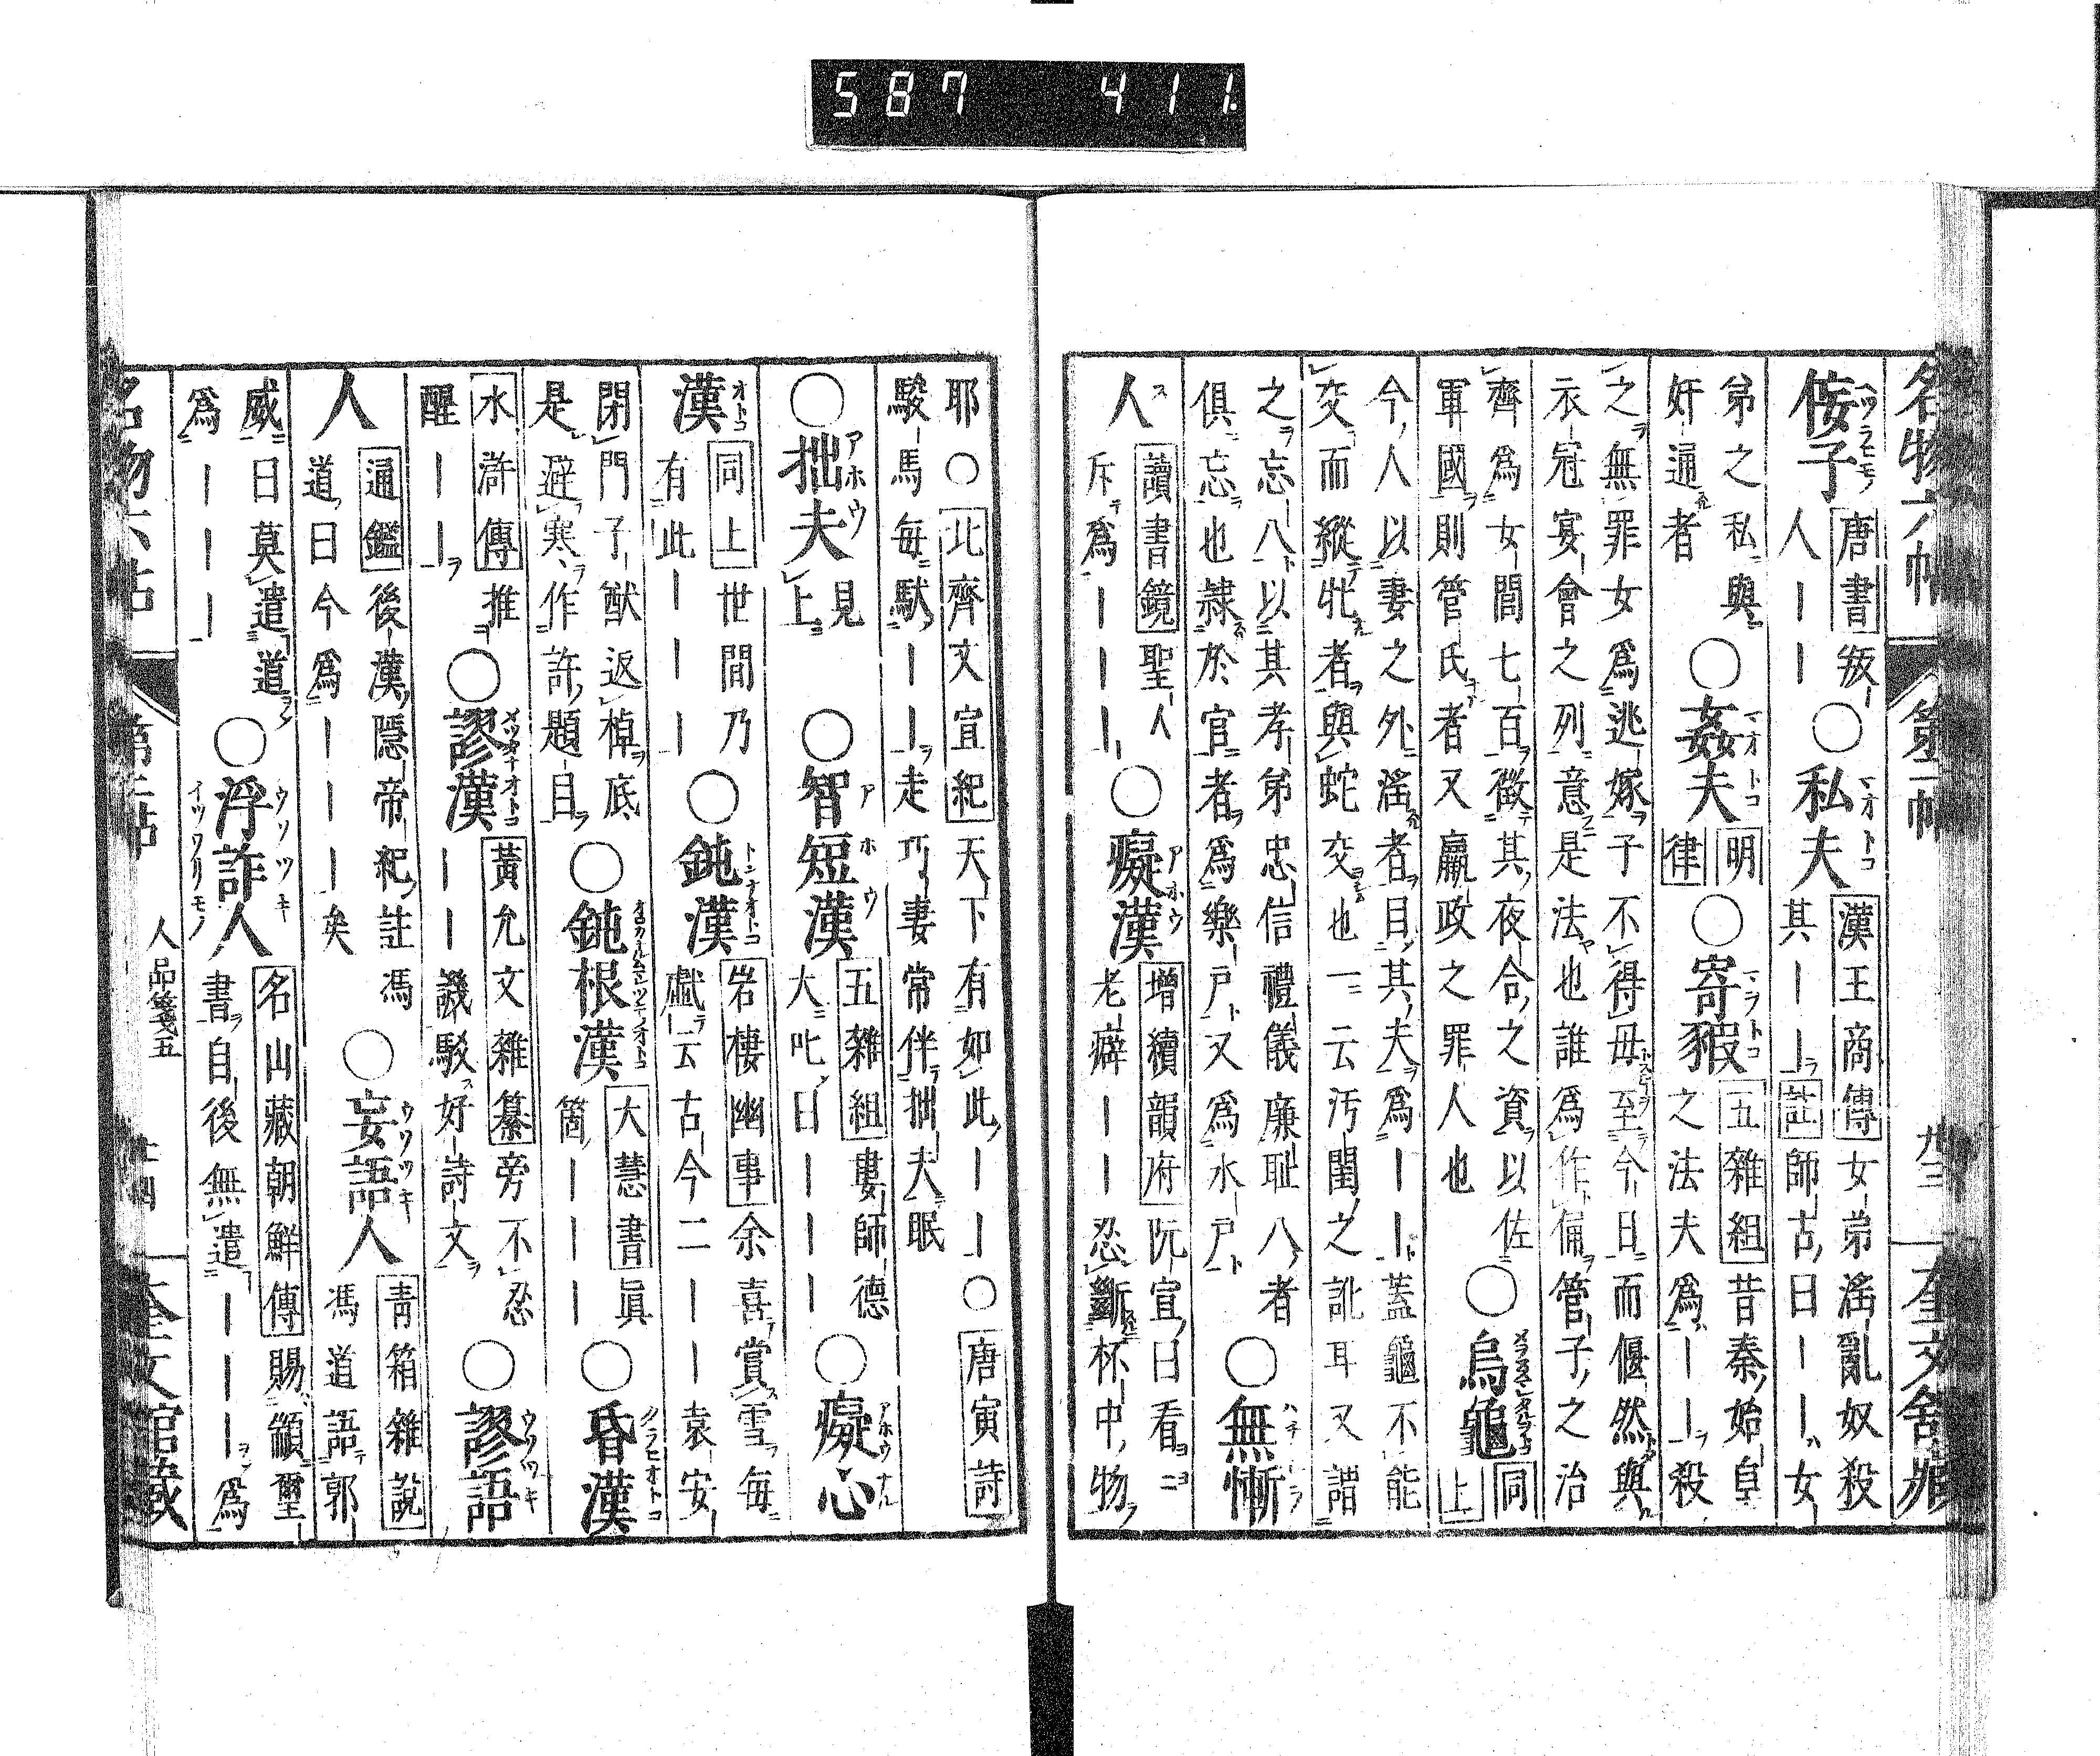 587 411
名物六帖 第二帖 九三 奎文舘藏
侫子 ヘツラヒモノ 唐書 叛人｜｜ ○私夫 マオトコ 漢王商傳 女弟淫亂奴殺其｜｜ 註 師古曰｜｜女
弟之私與奸通者 ○姦夫 マオトコ 明律 ○寄豭 マヲトコ 五雜組 昔秦始皇之法夫爲｜｜殺
之無罪女爲逃嫁子不得母至今日而偃然與
衣冠宴會之列意是法也誰爲作俑管子之治
齊爲女閭七百徵其夜合之資以佐
軍國則管氏者又嬴政之罪人也 ○烏龜 同上
今人以妻之外淫者目其夫爲｜｜蓋龜不能
交而縱牝者與蛇交也一云汚閨之訛耳又謂
之忘八以其孝弟忠信禮儀廉耻八者
俱忘也隷於官者爲樂戸又爲水戸 ○無慚
人 讀書鏡 聖人斥爲｜｜｜ ○癡漢 アホウ 增續韻府 阮宣曰看老癖｜｜忍斷杯中物
耶○ 北齊文宣紀 天下有如此｜｜○ 唐寅詩
駿馬每馱｜｜走巧妻常伴拙夫眠
○拙夫 アホウ 見上 ○智短漢 アホウ 五雜組 婁師德大叱曰｜｜｜ ○癡心
漢 オトコ 同上 世間乃有此｜｜｜ ○鈍漢 岩棲幽事 余喜賞雪每戲云古今二｜｜袁安
閉門子猷返棹底是避寒作許題目 ○鈍根漢 大慧書 眞箇｜｜｜ ○昏漢 クラヒオトコ
水滸傳 推醒｜｜ ○謬漢 黃允文雜纂 旁不忍｜｜譏駁好詩文 ○謬語 ウソツキ
人 通鑑 後漢隱帝紀註馮道曰今爲｜｜｜矣 ○妄語人 ウソツキ 靑箱雜說 馮道語郭
威曰莫遣道爲｜｜｜ ○浮詐人 ウソツキ イツワリモノ 名山藏朝鮮傳 賜額璽書自後無遣｜｜｜爲
名物六帖 第二帖 人品箋五 奎文舘藏